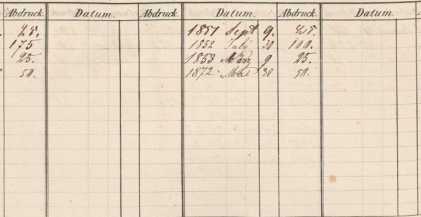 Abdruck. Datum. Abdruck. Datum. Abdruck. Datum.
25. 1851 Sept 9. 25.
175 1852 July 20 100.
25. 1853 März 9 25.
50. 1872 30 50.